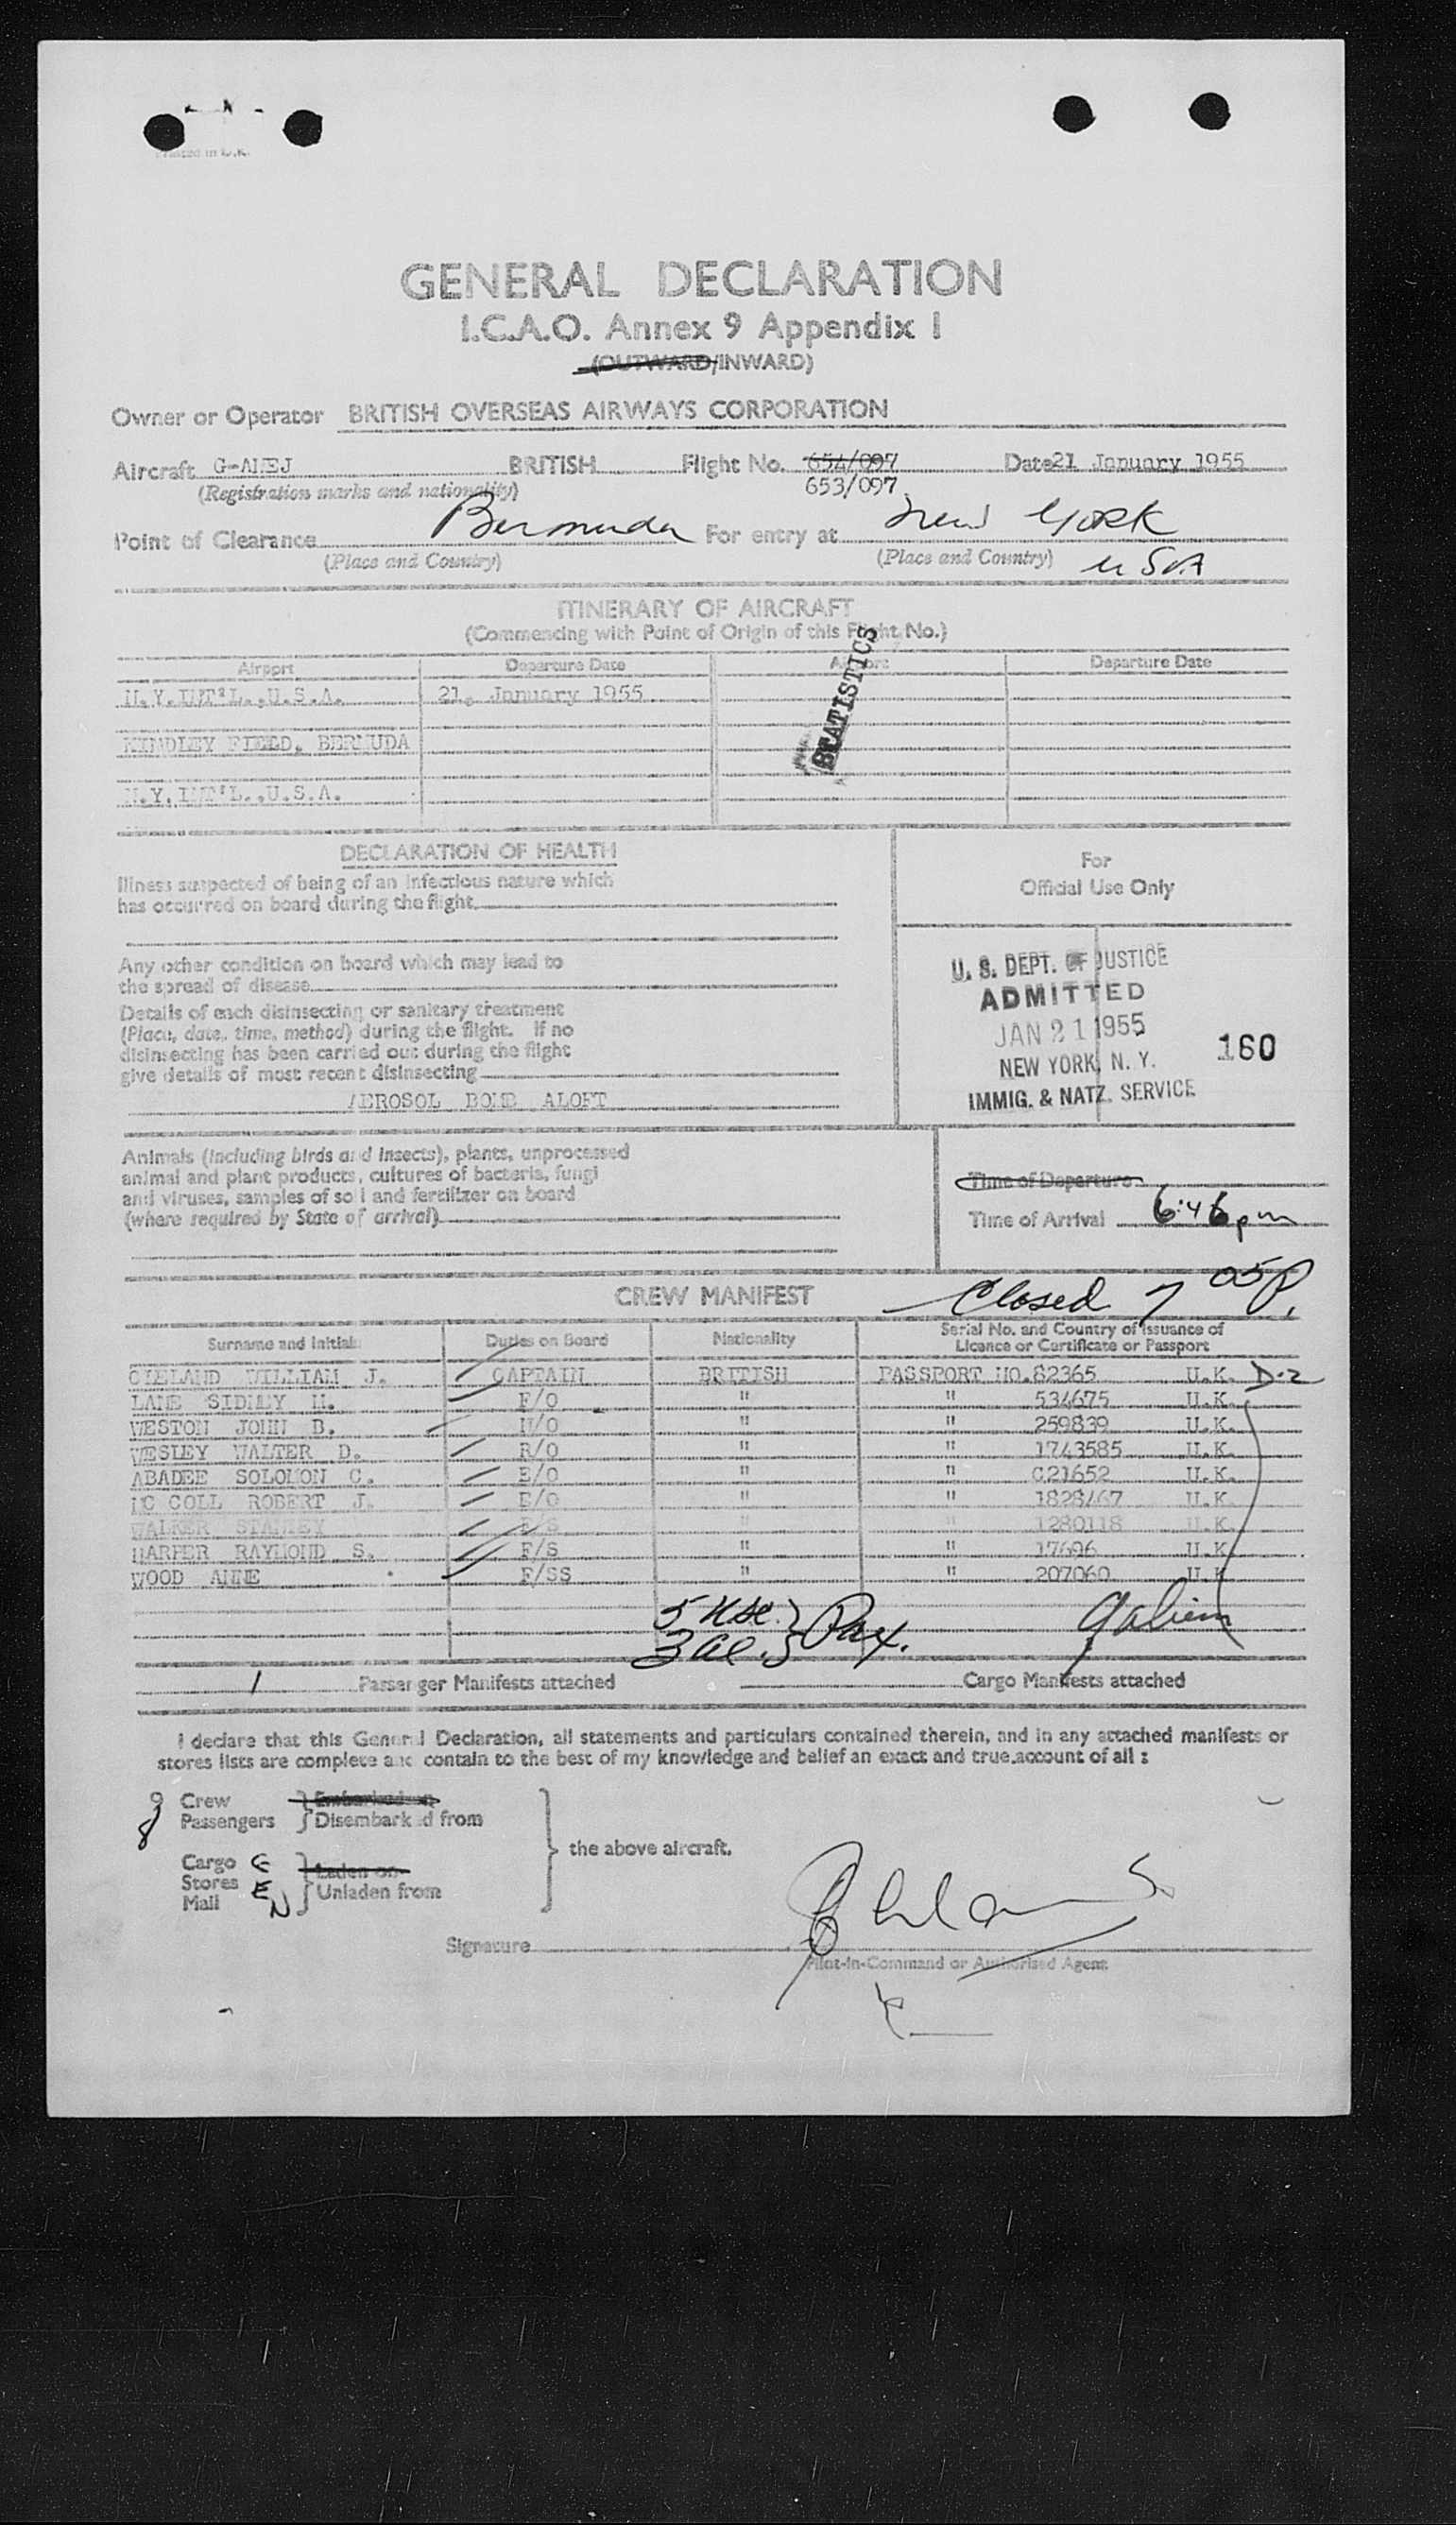 Printed in U.K.
GENERAL DECLARATION
I.C.A.O. Annex 9 Appendix I
(OUTWARD/INWARD)
Owner or Operator BRITISH OVERSEAS AIRWAYS CORPORATION
Aircraft BRITISH Flight No. 654/097 Date 21 January 1955
(Registration marks and nationality) 653/097
Point of Clearance Bermuda For entry at New York
(Place and Country) (Place and Country) USA
ITINERARY OF AIRCRAFT
(Commencing with Point of Origin of this Flight No.)
Airport Departure Date Airport Departure Date
N.Y.INT'L.,U.S.A. 21. January 1955
STATISTICS
KINDLEY FIELD, BERMUDA
N.Y.INT'L.,U.S.A.
DECLARATION OF HEALTH
Illness suspected of being of an infectious nature which
has occurred on board during the flight
Any other condition on board which may lead to
the spread of disease
Details of each disinsecting or sanitary treatment
(Place, date, time, method) during the flight. If no
disinsecting has been carried out during the flight
give details of most recent disinsecting
AEROSOL BOMB ALOFT
For
Official Use Only
U. S. DEPT. OF JUSTICE
ADMITTED
JAN 21 1955
160
NEW YORK, N. Y.
IMMIG. & NATZ. SERVICE
Animals (including birds and insects), plants, unprocessed
animal and plant products, cultures of bacteria, fungi
and viruses, samples of soil and fertilizer on board
(where required by State of arrival)
Time of Departure
Time of Arrival 6:46 pm
CREW MANIFEST Closed 7 05P.
Surname and Initials Duties on Board Nationality Serial No. and Country of Issuance of
Licence or Certificate or Passport
WILLIAM J. CAPTAIN BRITISH PASSPORT NO.82365 U.K. D-2
LANE SIDNEY H. F/O " " 534675 U.K.
WESTON JOHN B. N/O " " 259839 U.K.
WESLEY WALTER D. R/O " " 1743585 U.K.
ABADEE SOLOMON C. E/O " " C21652 U.K.
MC COLL ROBERT J. E/O " " 1828467 U.K.
WALKER STANLEY " " 1280118 U.K.
HARPER RAYMOND S. F/S " " 17696 U.K.
WOOD ANNE F/SS " " 207060 U.K.
5 USC.
3 al. } Pax.
1 Passenger Manifests attached Cargo Manifests attached
I declare that this General Declaration, all statements and particulars contained therein, and in any attached manifests or
stores lists are complete and contain to the best of my knowledge and belief an exact and true account of all :
9 Crew Embarked on
8 Passengers Disembarked from
the above aircraft.
Cargo Laden on
Stores
Mail Unladen from
Signature
Pilot-in-Command or Authorised Agent